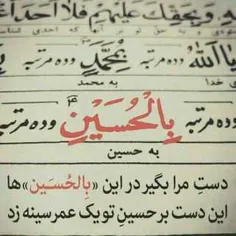 وَ بِحَقِّكَ عَلَيْهِمْ فَلا اَحَدَ اَعْ
یا اَللهُ وده مرتبه بِمُحَمَّدٍ وده مرتبه
به محمد
وده مرتبه بِالْحُسَيْنِ وده مرتبه
به حسین
دستِ مرا بگیر در این «بِالحُسَین» ها
این دست بر حسینِ تو یک عمر سینه زد